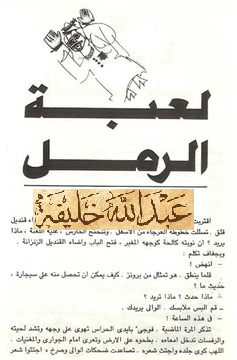 لعبة
الرمل
عبدالله خليفة
اقتربت
اء قنديل
قلق . تسللت خطوطه العرجاء من الأسفل . وتنحنح الحارس ، عليه اللعنة ، ماذا
يريد ؟ ان نوبته كالحة كوجهه المغبر ، فتح الباب وأضاء القنديل الزنزانة .
وبجفاف تكلم :
ـ انهض !
فلما ينطق . هو تمثال من برونز . كيف يمكن ان تحصل منه على سيجارة ،
حديث ما ؟
ـ ماذا حدث ؟ ماذا تريد ؟
ـ قم البس ملابسك . الوالي يريدك .
ـ في هذه الساعة !
تذكر المرة الماضية . فوجئ بأيدي الحراس تهوي على وجهه وتشد لحيته
والرفسات تدخل امعاءه . بطحوه على الارض وتعرى امام الجواري والمغنيات .
اللوى كوى جلده واجتثت شعره . تصاعدت ضحكات الوالي وصرخ « اجتثوا شعر